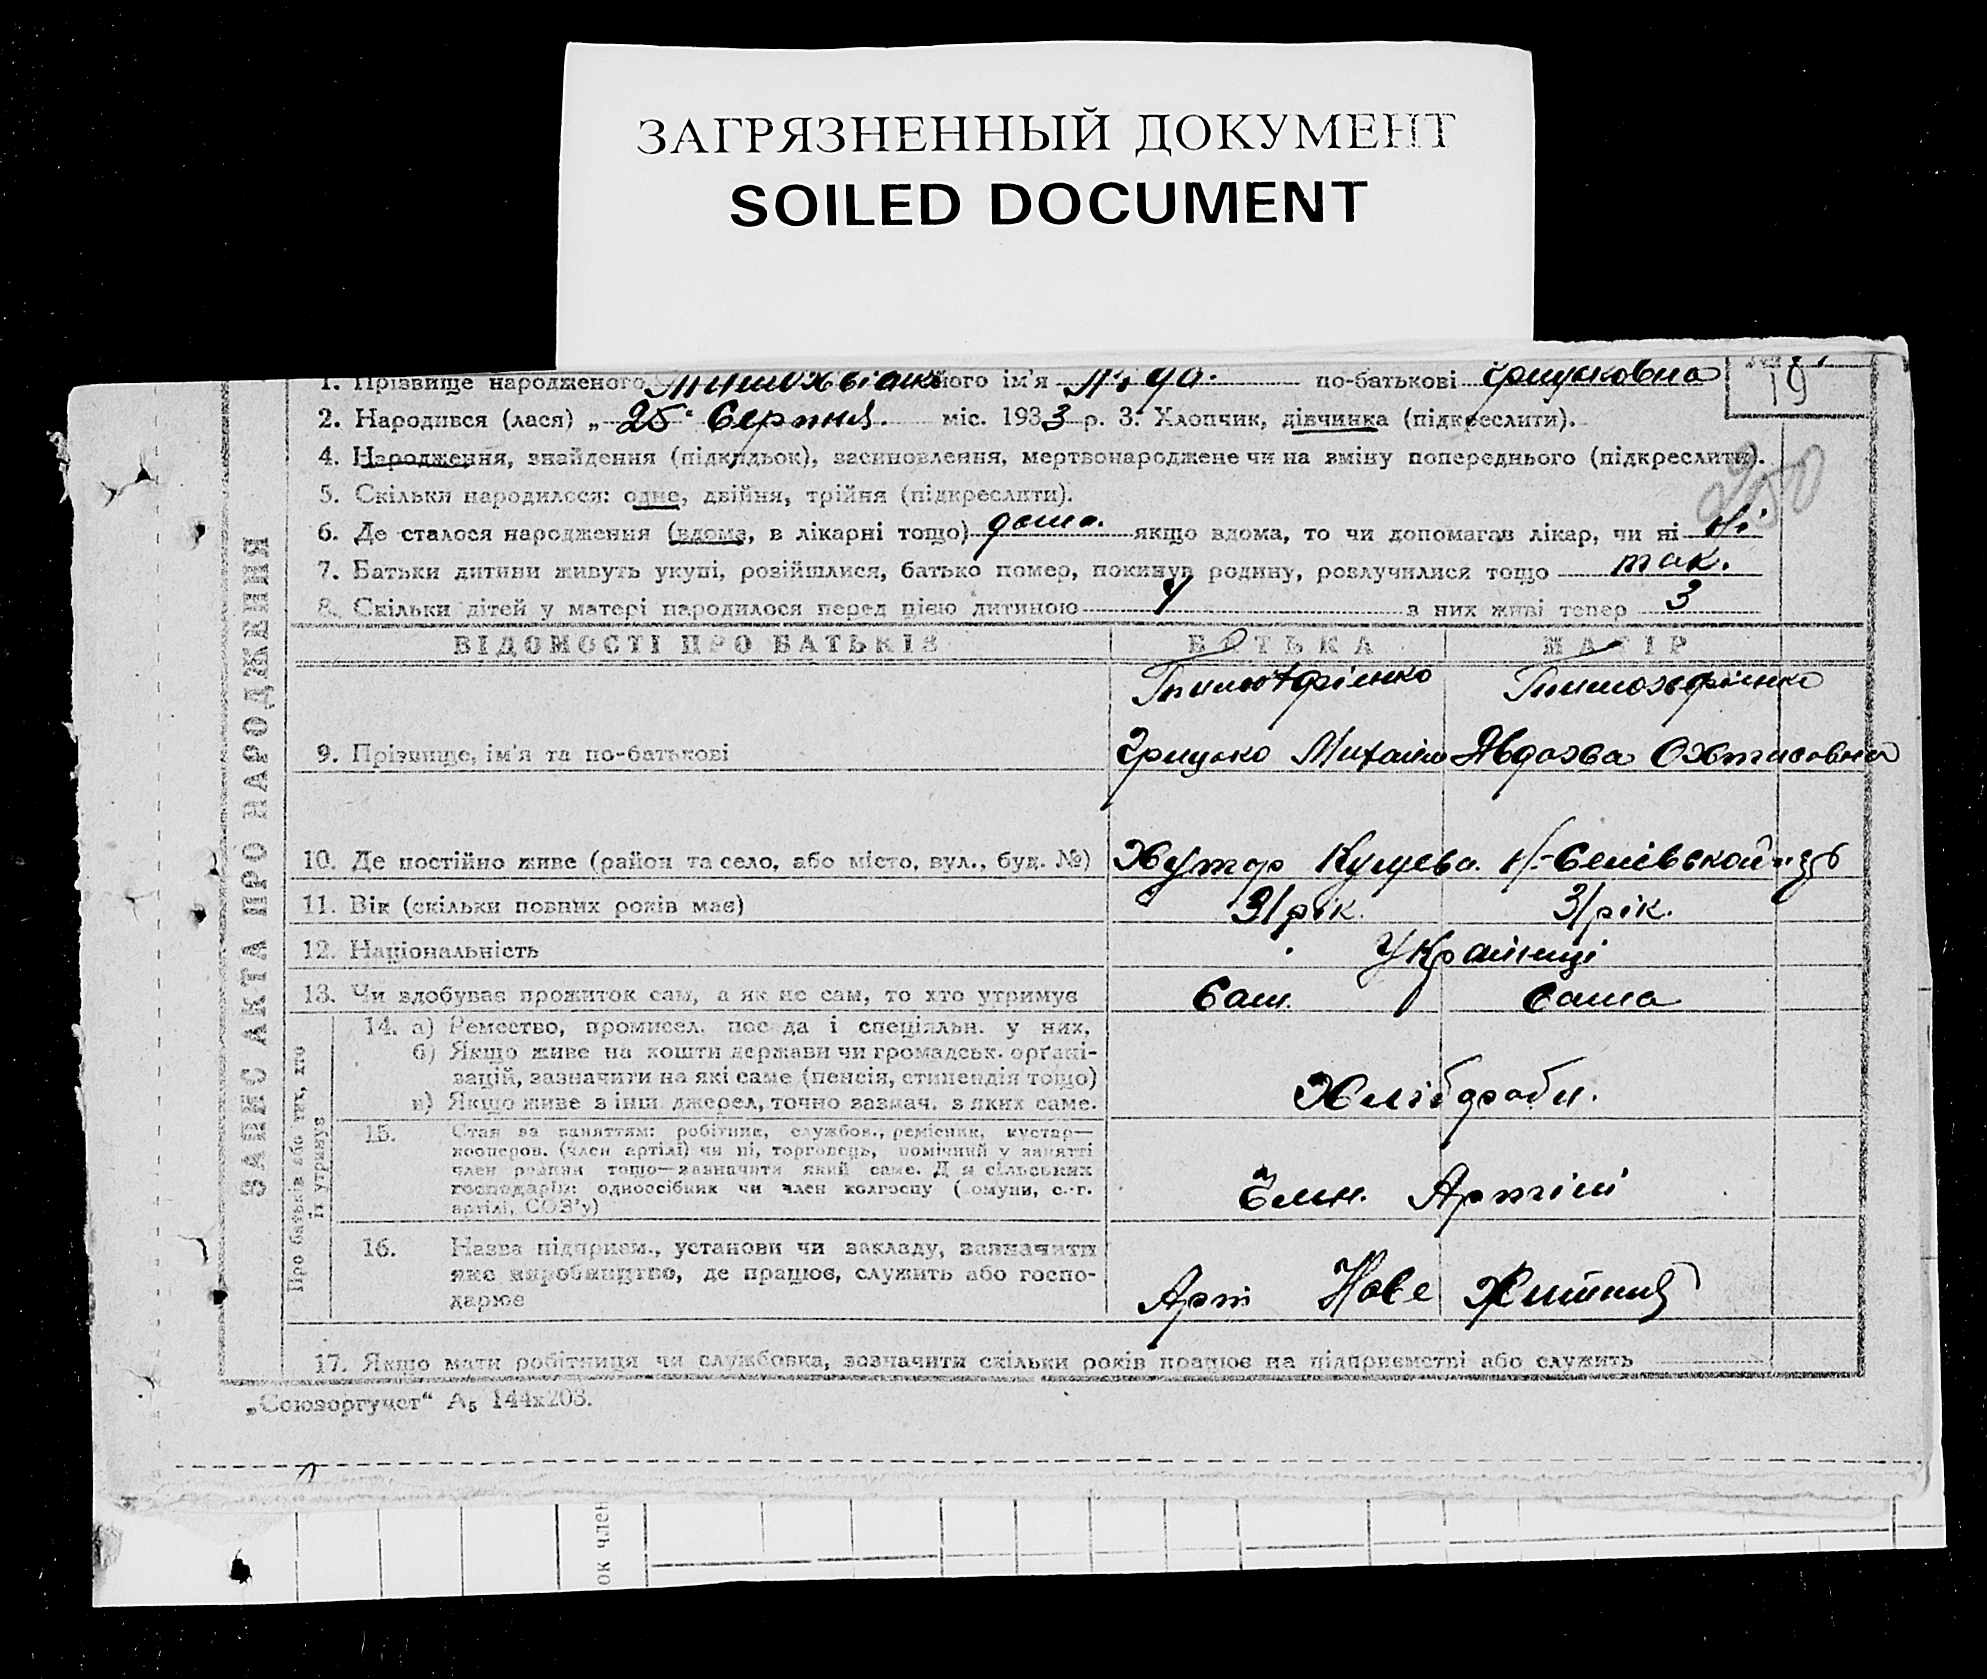 ЗАГРЯЗНЕННЫЙ ДОКУМЕНТ
SOILED DOCUMENT
1. Прізвище народженого його ім'я по-батькові Грицьковна
19
2. Народився (лася) „25" Серпня. міс. 1933 р. 3. Хлопчик, дівчинка (підкреслити).
4. Народження, знайдення (підкидьок), засиновлення, мертвонароджене чи на зміну попереднього (підкреслити).
250
5. Скільки народилося: одне, двійня, трійня (підкреслити).
6. Де сталося народження (вдома, в лікарні тощо) дома. якщо вдома, то чи допомагав лікар, чи ні Ні
7. Батьки дитини живуть укупі, розійшлися, батько помер, покинув родину, розлучилися тощо так.
8. Скільки дітей у матері народилося перед цією дитиною 4 з них живі тепер 3
ЗАПИС АКТА ПРО НАРОДЖЕННЯ
ВІДОМОСТІ ПРО БАТЬКІВ БАТЬКА МАТІР
9. Прізвище, ім'я та по-батькові Грицько Михайло Явдохва
10. Де постійно живе (район та село, або місто, вул., буд. №) Хутор
11. Вік (скільки повних років має) 31 рік. 31 рік.
12. Національність Українці
13. Чи здобуває прожиток сам, а як не сам, то хто утримує Сам. Сама
Про батьків або тих, хто їх утримує
14. а) Ремество, промисел. посада і спеціяльн. у них.
б) Якщо живе на кошти держави чи громадськ. орґані-
зацій, зазначити на які саме (пенсія, стипендія тощо)
в) Якщо живе з інш. джерел, точно зазнач. з яких саме.
Хлібороби.
15. Стан за заняттям: робітник, службов., ремісник, кустар—
кооперов. (член артілі) чи ні, торговець, помічний у занятті
член родини тощо—зазначити який саме. Для сільських
господарів: одноосібник чи член колгоспу (комуни, с.-г.
артілі, СОЗ'у)
Артілі
16. Назва підприєм., установи чи закладу, зазначити
яке виробництво, де працює, служить або госпо-
дарює
Арт Нове Життя
17. Якщо мати робітниця чи службовка, зазначити скільки років працює на підприємстві або служить
„Союзоргучет" А5 144х203.
ок член